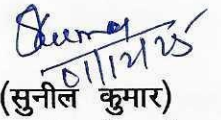 01/12/25
(सुनील कुमार)